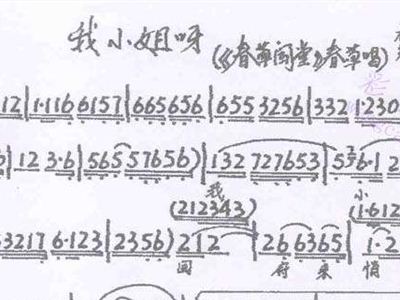 我小姐呀
(《春草闯堂》春草唱)
12|1·116 6157|665 656|655 3256|332 1·230
|12 3·6|565 57656)|132 727653|5 3 6·1 2
我 小
(212343) (1·612
3217 6·123|2356)212|26 6365|1·2
回 府 来 悄